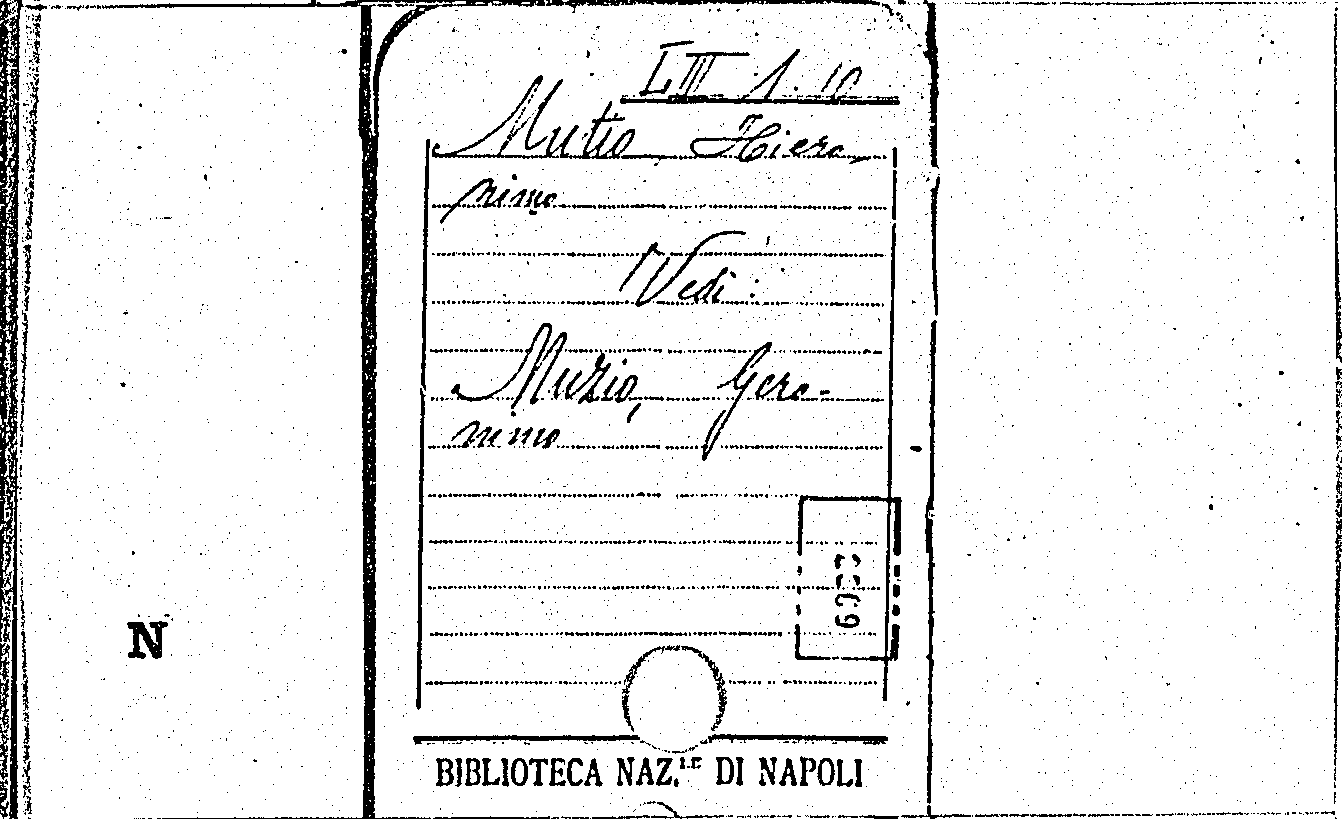 LIII 1. 10
Mutio, Hiero-
nimo
Vedi:
Muzio, Gero-
nimo
N
BIBLIOTECA NAZ.LE DI NAPOLI